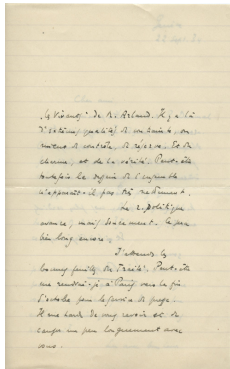 les Vivants, de M. Arland. Il y a là
d'extrêmes qualités de contrainte, ou
mieux de contrôle, de réserve. Et du
charme, et de la vérité. Peut-être
toutefois le dessin de l'ensemble
n'apparaît-il pas très nettement.
Le r. politique
avance, mais lentement. Un peu
bien long encore.
J'attends les
bonnes feuilles du Traité. Peut-être
me rendrai-je à Paris vers la fin
d'octobre pour
Il me tarde de vous revoir et de
causer un peu longuement avec
vous.